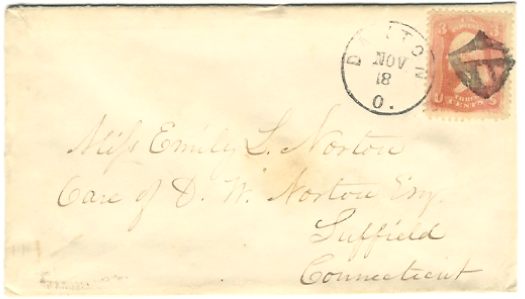 DAYTON
NOV
18
O.
3 3
U THREE S
CENTS
Miss Emily L. Norton
Care of D. W. Norton Esq.
Suffield
Connecticut